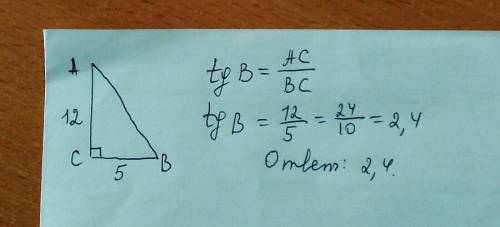 A
12
C
5
B
tg B = AC/BC
tg B = 12/5 = 24/10 = 2,4
Ответ: 2,4.